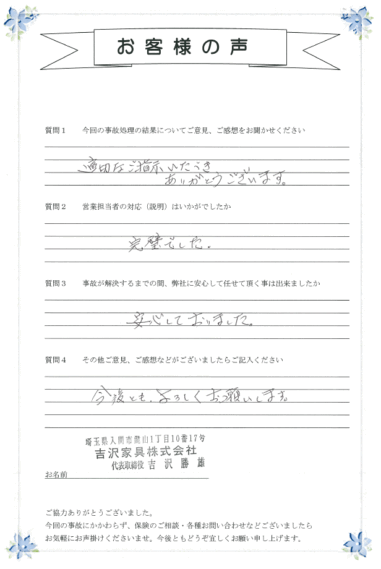 お客様の声
質問１ 今回の事故処理の結果についてご意見、ご感想をお聞かせください
適切なご指示いただき
ありがとうございます。
質問２ 営業担当者の対応（説明）はいかがでしたか
完璧でした。
質問３ 事故が解決するまでの間、弊社に安心して任せて頂く事は出来ましたか
安心しておりました。
質問４ その他ご意見、ご感想などがございましたらご記入ください
今後とも、よろしくお願いします。
埼玉県入間市狭山1丁目10番17号
吉沢家具株式会社
代表取締役 吉沢勝雄
お名前
ご協力ありがとうございました。
今回の事故にかかわらず、保険のご相談・各種お問い合わせなどございましたら
お気軽にお声掛けくださいませ。今後ともどうぞ宜しくお願い申し上げます。